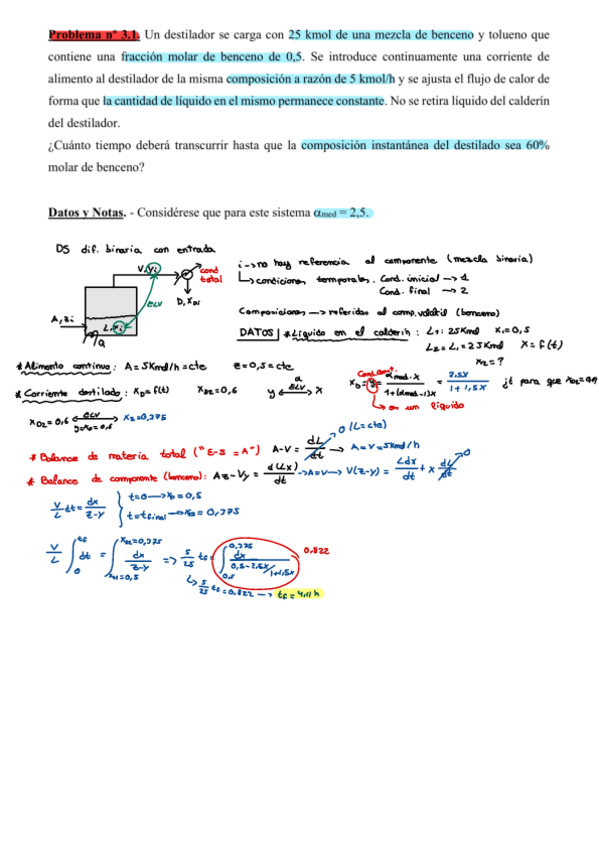 Problema nº 3.1. Un destilador se carga con 25 kmol de una mezcla de benceno y tolueno que
contiene una fracción molar de benceno de 0,5. Se introduce continuamente una corriente de
alimento al destilador de la misma composición a razón de 5 kmol/h y se ajusta el flujo de calor de
forma que la cantidad de líquido en el mismo permanece constante. No se retira líquido del calderín
del destilador.
¿Cuánto tiempo deberá transcurrir hasta que la composición instantánea del destilado sea 60%
molar de benceno?
Datos y Notas. - Considérese que para este sistema αmed = 2,5.
DS dif. binaria con entrada
V, yi
cond total
D, xDi
ELV
A, zi
L, xi
Q
i → no hay referencia al componente (mezcla binaria)
↳ condiciones temporales. Cond. inicial → 1
Cond. final → 2
Composiciones → referidas al comp. volatil (benceno)
DATOS * Líquido en el calderín: L1: 25 Kmol x1=0,5
L2 = L1 = 25 Kmol x = f(t)
x2 = ?
* Alimento continuo: A = 5Kmol/h = cte z = 0,5 = cte
* Corriente destilado: xD = f(t) xD2 = 0,6 y ←α ELV→ x
xD = y = αmed·x / 1+(αmed-1)x = 2,5x / 1+1,5x ¿t para que xD2=0,6
Cond. total
en un líquido
xD2 = 0,6 ←ELV→ x2 = 0,375
y=xD=0,6
* Balance de materia total ("E-S = A") A-V = dL/dt → A = V = 5Kmol/h
0 (L=cte)
* Balance de componente (benceno): Az - Vy = d(Lx)/dt → A=V → V(z-y) = Ldx/dt + x dL/dt 0
V/L dt = dx/z-y } t=0 → x1 = 0,5
t = tfinal → x2 = 0,375
V/L ∫0tf dt = ∫x1=0,5 x2=0,375 dx/z-y => 5/25 tf = ∫0,5 0,375 dx / 0,5-2,5x/1+1,5x 0,822
↳ 5/25 tf = 0,822 → tf = 4,11 h